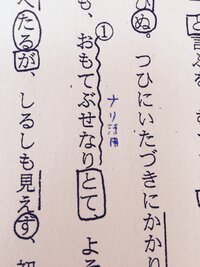 と言ふ
ひぬ。つひにいたづきにかかり
①
も、おもてぶせなりとて、よ
ナリ活用
たるが、しるしも見えず、初